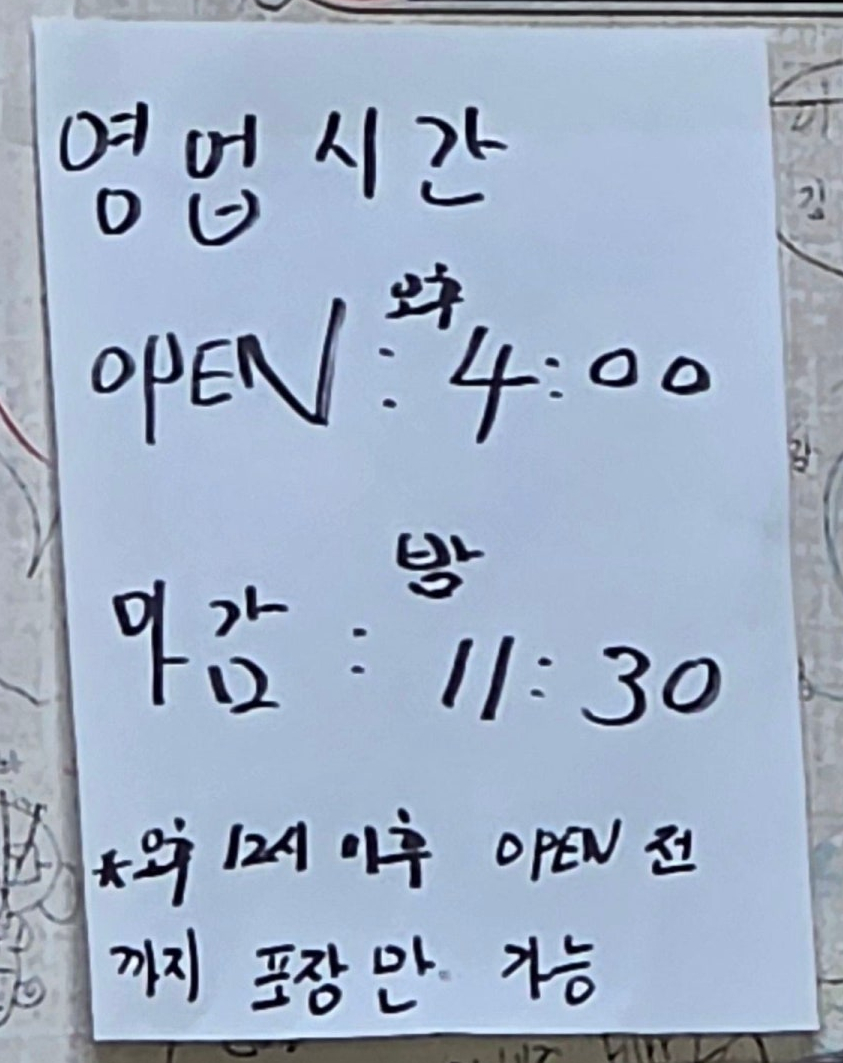 영업시간
OPEN : 오후 4:00
마감 : 밤 11:30
*오후 12시 이후 OPEN 전
까지 포장만 가능